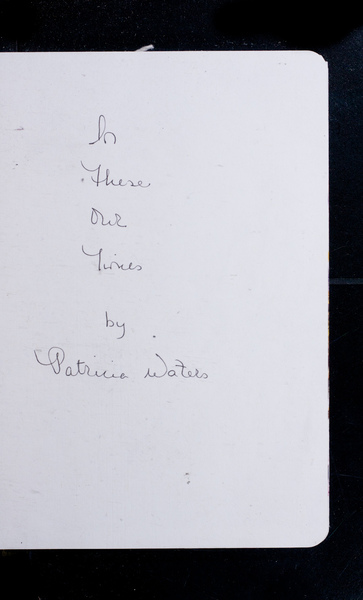 In
These
Our
Times
by
Patricia Waters